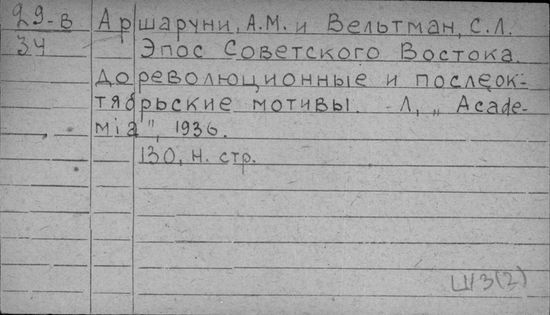 29-в Аршаруни, А.М. и Вельтман, С.Л.
34 Эпос Советского Востока.
Дореволюционные и послеок-
тябрьские мотивы. Л, „Acade-
mia", 1936.
130, н. стр.
Ш3(2)